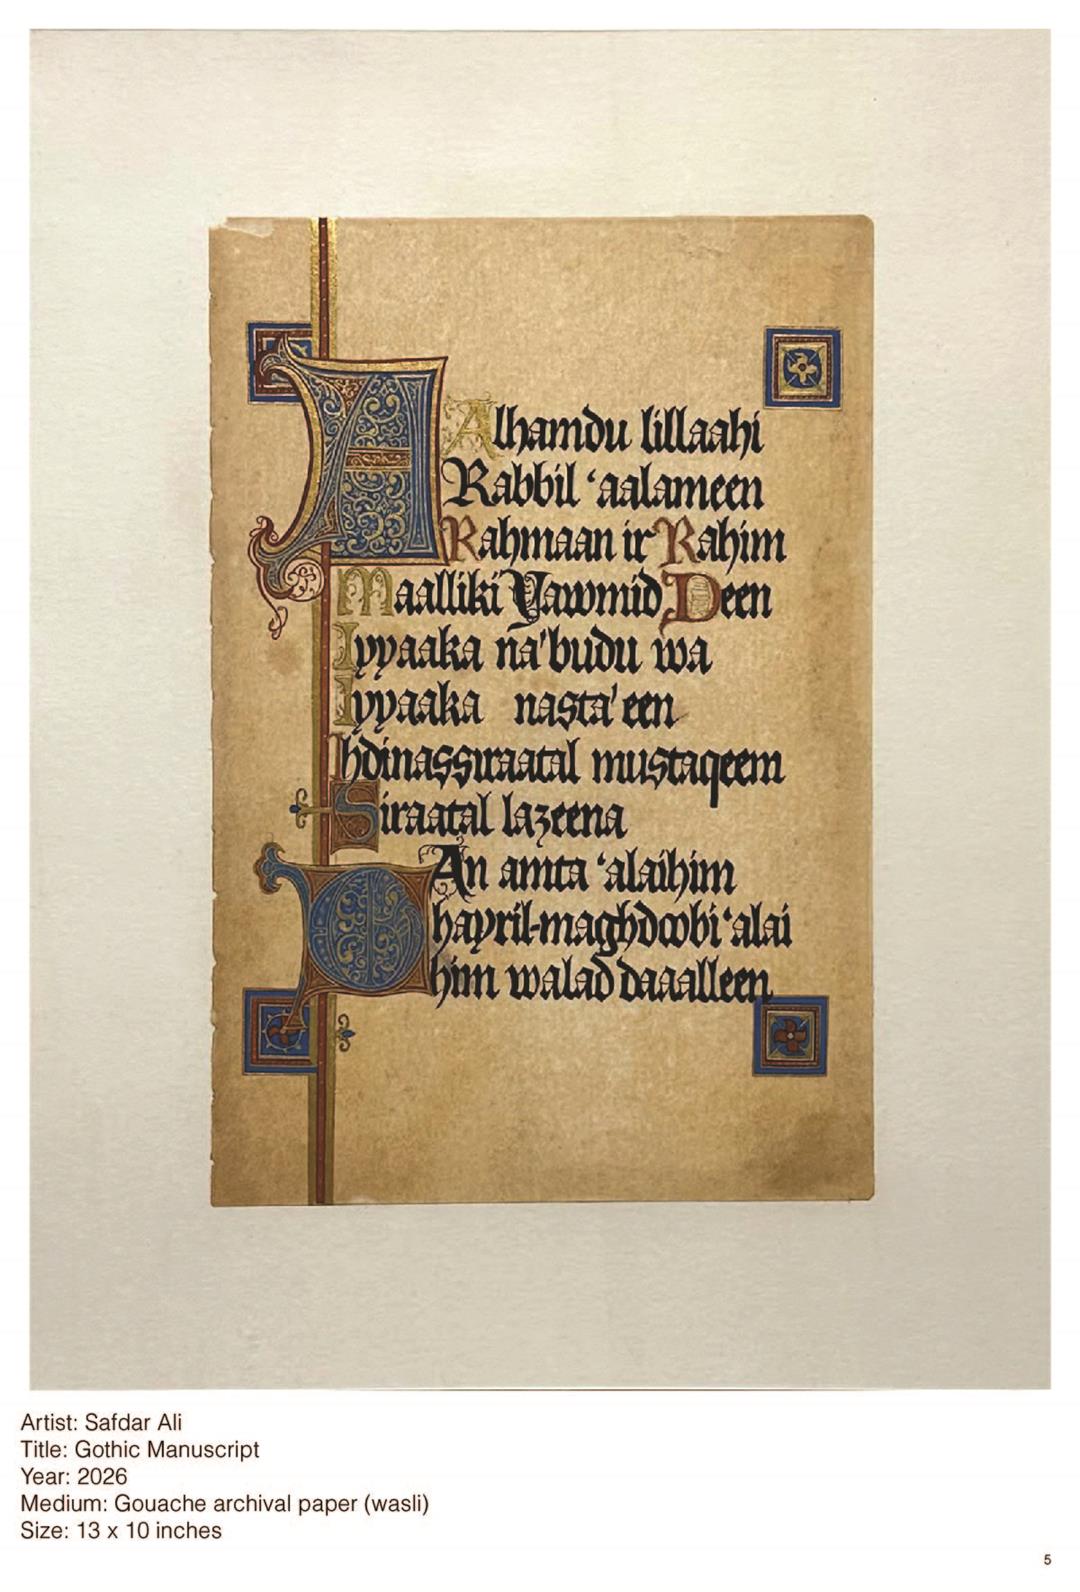 Alhamdu lillaahi
Rabbil ‘aalameen
Rahmaan ir Rahim
Maalliki Yawmid Deen
Iyyaaka na'budu wa
Iyyaaka nasta'een
Ihdinassiraatal mustaqeem
Siraatal lazeena
An amta ‘alaihim
Ghayril-maghdoobi ‘alai
him walad daaalleen
Artist: Safdar Ali
Title: Gothic Manuscript
Year: 2026
Medium: Gouache archival paper (wasli)
Size: 13 x 10 inches
5